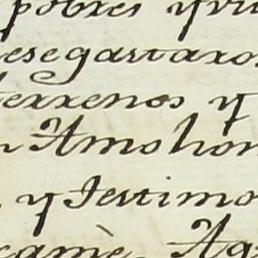 pobres y vi
ese gastaro
terrenos y
n Amo hon
y Testimo
came Ag